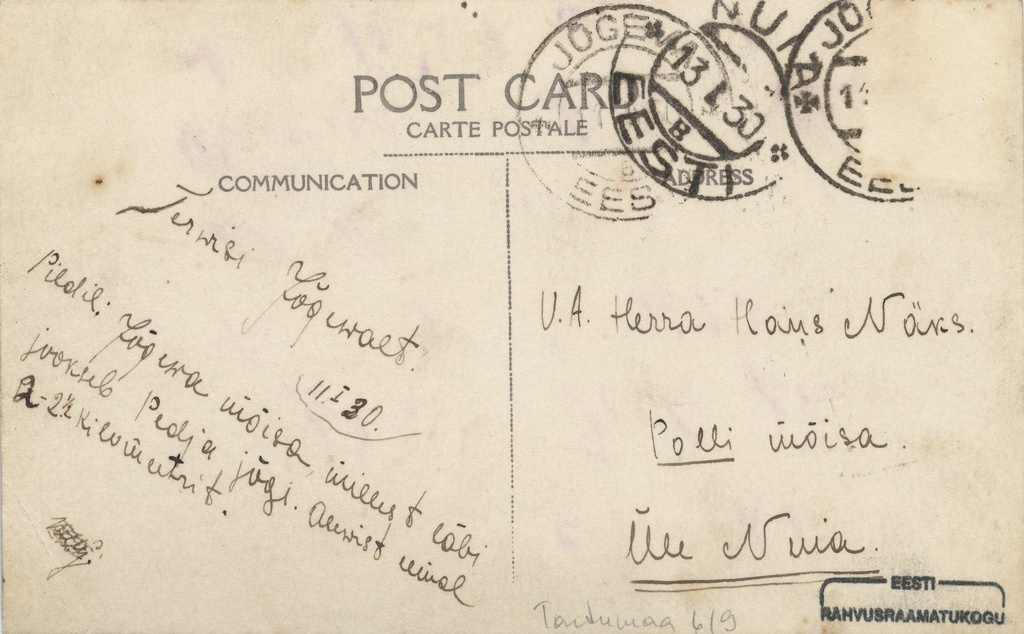 POST CARD
CARTE POSTALE
COMMUNICATION
ADDRESS
JÕGEVA
EES
NUIA
13 I 30
B
EESTI
JÕ
VA
EES
Terwisi
Jõgewalt.
11.I 30.
Pildil: Jõgewa mõisa, millest läbi
jookseb Pedja jõgi. Alewist eemal
2-2½ kilomeetrit.
V.A. Herra Hans Näks.
Polli mõisa.
Üle Nuia.
Tartumaa 6/9
EESTI
RAHVUSRAAMATUKOGU